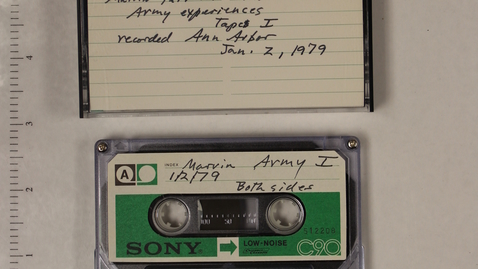 Army experiences
Tape I
recorded Ann Arbor
Jan. 2, 1979
4
3
2
1
A
INDEX
Marvin Army I
1/2/79
Both sides
100 50 0
SONY
LOW-NOISE
C90